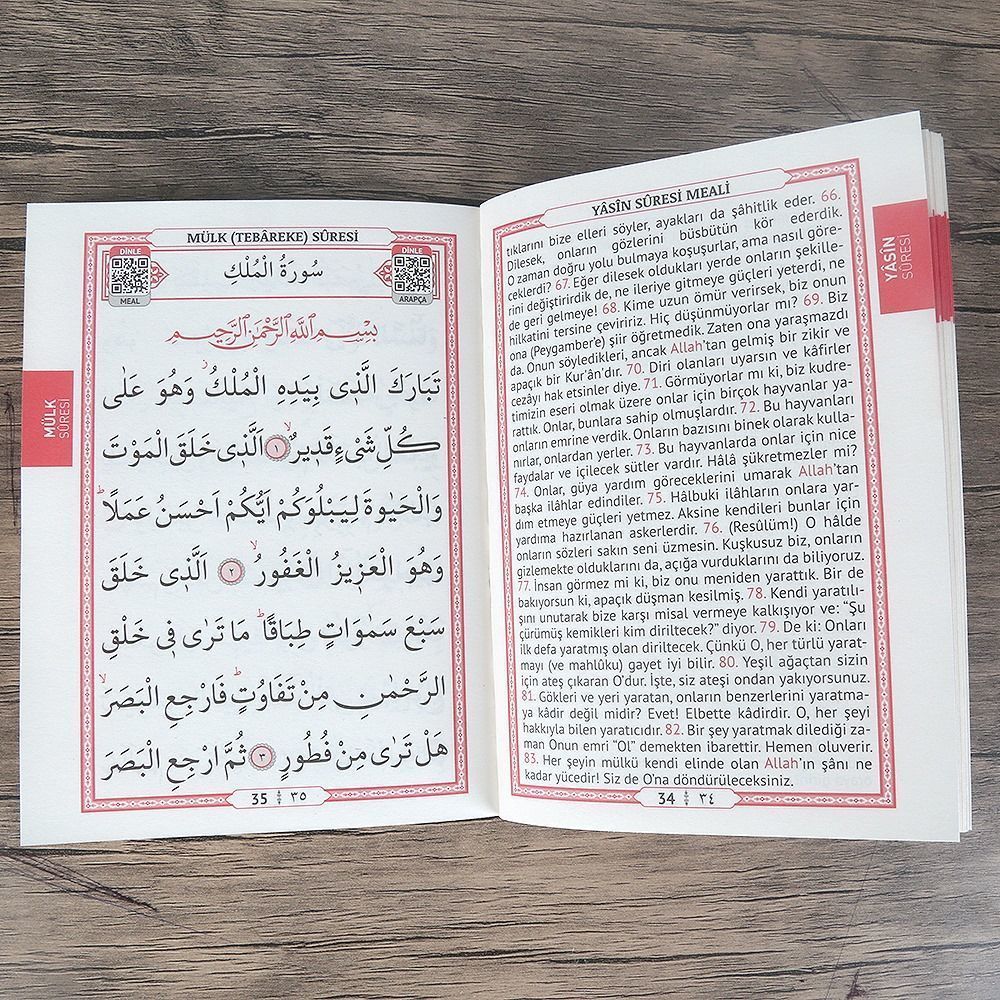 YÂSÎN SÛRESİ MEALİ
tıklarını bize elleri söyler, ayakları da şâhitlik eder. 66.
Dilesek, onların gözlerini büsbütün kör ederdik.
O zaman doğru yolu bulmaya koşuşurlar, ama nasıl göre-
ceklerdi? 67. Eğer dilesek oldukları yerde onların şekille-
rini değiştirirdik de, ne ileriye gitmeye güçleri yeterdi, ne
de geri gelmeye! 68. Kime uzun ömür verirsek, biz onun
hilkatini tersine çeviririz. Hiç düşünmüyorlar mı? 69. Biz
ona (Peygamber'e) şiir öğretmedik. Zaten ona yaraşmazdı
da. Onun söyledikleri, ancak Allah'tan gelmiş bir zikir ve
apaçık bir Kur'ân'dır. 70. Diri olanları uyarsın ve kâfirler
cezâyı hak etsinler diye. 71. Görmüyorlar mı ki, biz kudre-
timizin eseri olmak üzere onlar için birçok hayvanlar ya-
rattık. Onlar, bunlara sahip olmuşlardır. 72. Bu hayvanları
onların emrine verdik. Onların bazısını binek olarak kulla-
nırlar, onlardan yerler. 73. Bu hayvanlarda onlar için nice
faydalar ve içilecek sütler vardır. Hâlâ şükretmezler mi?
74. Onlar, güya yardım göreceklerini umarak Allah'tan
başka ilâhlar edindiler. 75. Hâlbuki ilâhların onlara yar-
dım etmeye güçleri yetmez. Aksine kendileri bunlar için
yardıma hazırlanan askerlerdir. 76. (Resûlüm!) O hâlde
onların sözleri sakın seni üzmesin. Kuşkusuz biz, onların
gizlemekte olduklarını da, açığa vurduklarını da biliyoruz.
77. İnsan görmez mi ki, biz onu meniden yarattık. Bir de
bakıyorsun ki, apaçık düşman kesilmiş. 78. Kendi yaratılı-
şını unutarak bize karşı misal vermeye kalkışıyor ve: "Şu
çürümüş kemikleri kim diriltecek?" diyor. 79. De ki: Onları
ilk defa yaratmış olan diriltecek. Çünkü O, her türlü yarat-
mayı (ve mahlûku) gayet iyi bilir. 80. Yeşil ağaçtan sizin
için ateş çıkaran O'dur. İşte, siz ateşi ondan yakıyorsunuz.
81. Gökleri ve yeri yaratan, onların benzerlerini yaratma-
ya kâdir değil midir? Evet! Elbette kâdirdir. O, her şeyi
hakkıyla bilen yaratıcıdır. 82. Bir şey yaratmak dilediği za-
man Onun emri "Ol" demekten ibarettir. Hemen oluverir.
83. Her şeyin mülkü kendi elinde olan Allah'ın şânı ne
kadar yücedir! Siz de O'na döndürüleceksiniz.
34 ٣٤
YÂSÎN
SÛRESİ
MÜLK (TEBÂREKE) SÛRESİ
DİNLE
MEAL
سُورَةُ الْمُلْكِ
DİNLE
ARAPÇA
بِسْمِ اللّٰهِ الرَّحْمٰنِ الرَّحِيمِ
تَبَارَكَ الَّذٖى بِيَدِهِ الْمُلْكُۙ وَهُوَ عَلٰى
كُلِّ شَىْءٍ قَدٖيرٌۙ ﴿١﴾ اَلَّذٖى خَلَقَ الْمَوْتَ
وَالْحَيٰوةَ لِيَبْلُوَكُمْ اَيُّكُمْ اَحْسَنُ عَمَلًاۜ
وَهُوَ الْعَزٖيزُ الْغَفُورُۙ ﴿٢﴾ اَلَّذٖى خَلَقَ
سَبْعَ سَمٰوَاتٍ طِبَاقًاۜ مَا تَرٰى فٖى خَلْقِ
الرَّحْمٰنِ مِنْ تَفَاوُتٍۜ فَارْجِعِ الْبَصَرَۙ
هَلْ تَرٰى مِنْ فُطُورٍ ﴿٣﴾ ثُمَّ ارْجِعِ الْبَصَرَ
35 ٣٥
MÜLK
SÛRESİ